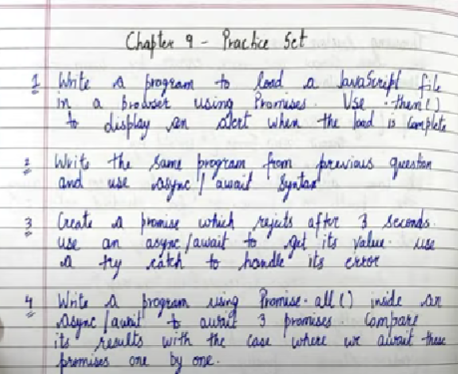 Chapter 9 - Practice Set
1 Write a program to load a JavaScript file
in a browser using Promises. Use .then()
to display an alert when the load is complete
2 Write the same program from previous question
and use async/await syntax
3 Create a promise which rejects after 3 seconds.
use an async/await to get its value. use
a try catch to handle its error
4 Write a program using Promise.all() inside an
async/await to await 3 promises. Compare
its results with the case where we await these
promises one by one.